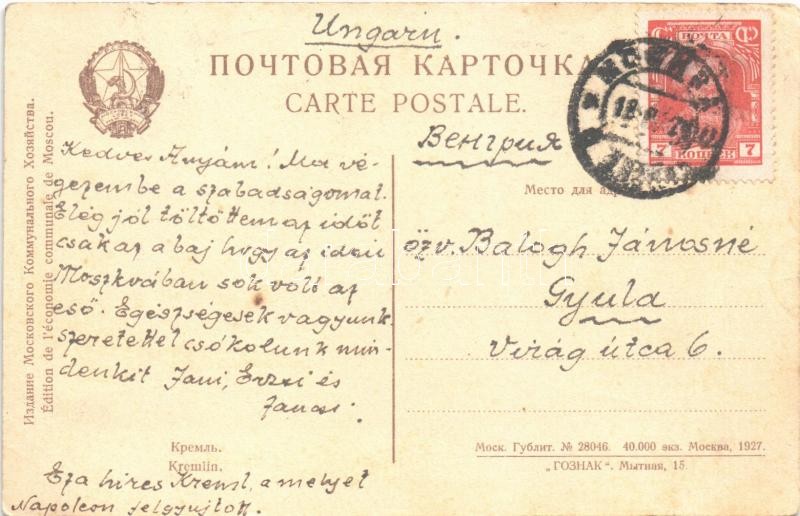 Ungarn.
ПОЧТОВАЯ КАРТОЧКА
CARTE POSTALE.
ПОЧТА
7 КОПЕЕК 7
Венгрия
Место для
Издание Московского Коммунального Хозяйства.
Édition de l'économie communale de Moscou.
Kedves Anyám! Ma vé-
gezem be a szabadságomat.
Elég jól töltöttem az időt
csak az a baj hogy az idén
Moszkvában sok volt az
eső. Egészségesek vagyunk.
szeretettel csókolunk min-
denkit Jani, Erzsi és
özv. Balogh Jánosné
Gyula
Virág útca 6.
Кремль.
Kremlin.
Моск. Гублит. № 28046. 40.000 экз. Москва, 1927.
„ГОЗНАК“. Мытная, 15.
Ez a hires Kreml, a melyet
Napoleon felgyujtott.